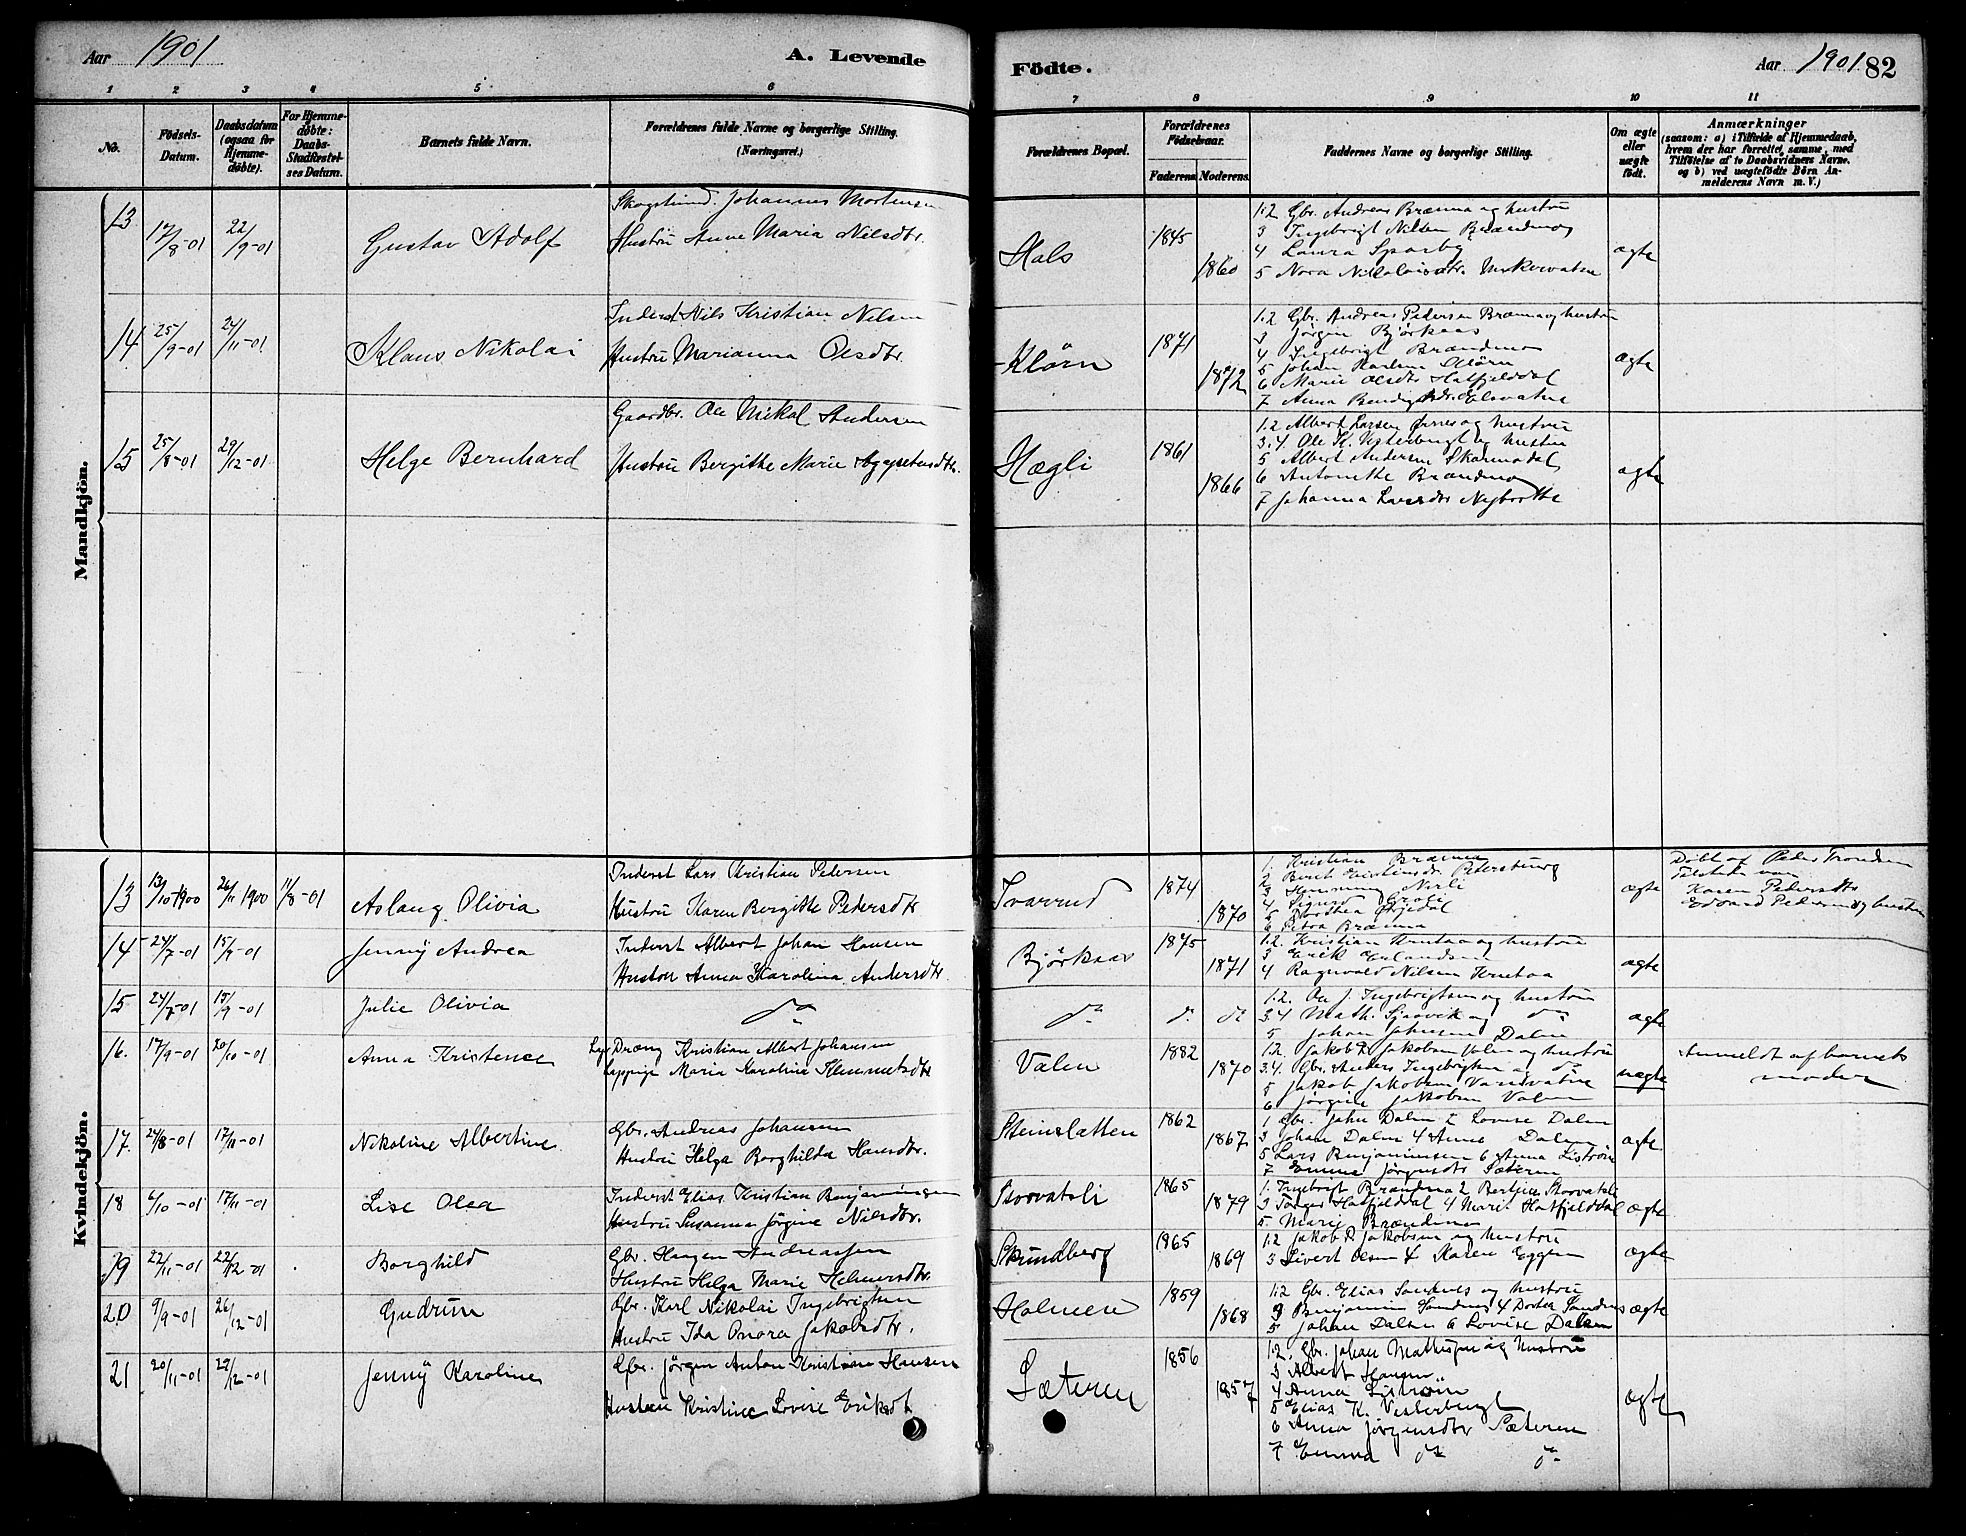 Aar 1901
A. Levende
1 2 3 4 5 6
No. Födsels-Datum. Daabsdatum (ogsaa for Hjemmedöbte). For Hjemmedöbte: Daabs-Stadfæstelses Datum. Barnets fulde Navn. Forældrenes fulde Navne og borgerlige Stilling. (Næringsvei.)
Mandkjön.
13 17/8-01 22/9-01 Gustav Adolf
Johannes Mortensen
Hustru Anne Maria Nilsdtr.
14 25/9-01 24/11-01 Klaus Nikolai
Inderst Nils Kristian Nilsen
Hustru Marianna Olsdtr.
15 25/8-01 29/12-01 Helge Bernhard
Gaardbr. Ole Mikal Andersen
Hustru Bergitte Marie
Kvindekjön.
13 13/10 1900 26/11 1900 11/8-01 Aslaug Olivia
Inderst Lars Kristian Petersen
Hustru Karen Bergitte Pedersdtr
14 24/7-01 15/9-01 Jenny Andrea
Inderst Albert Johan Hansen
Hustru Anna Karolina Andersdtr.
15 24/7-01 15/9-01 Julie Olivia
do
16. 17/9-01 20/10-01 Anna Kristence
Dreng Kristian Albert Johansen
Maria Karoline Klemmetsdtr
17. 24/8-01 17/11-01 Nikoline Albertine
Gbr. Andreas Johansen
Hustru Helga Borghilda Hansdtr.
18 6/10-01 17/11-01 Lise Olea
Inderst Elias Kristian Benjaminsen
Hustru Susanna Jørgine Nilsdtr.
19 22/11-01 22/12-01 Borghild
Gbr. Haagen Andreassen
Hustru Helga Marie Helmersdtr.
20 9/9-01 26/12-01 Gudrun
Gbr. Karl Nikolai Ingebrigtsen
Hustru Ida Onora Jakobsdtr.
21 20/11-01 29/12-01 Jenny Karoline
Gbr. Jørgen Anton Kristian Hansen
Hustru Kristine Lovise Eriksdt
Födte.
Aar 1901 82
7 8 9 10 11
Forældrenes Bopæl. Forældrenes Födselsaar. Faderens Moderens. Faddernes Navne og borgerlige Stilling. Om ægte eller uægte födt. Anmærkninger (saasom: a) i Tilfælde af Hjemmedaab, hvem der har forrettet samme, med Tilföielse af to Daabsvidners Navne. og b) ved uægtefödte Börn Anmelderens Navn m. V.)
Hals 1845 1860 ægte
1.2 Gbr. Andreas Bræmna og hustru
3 Ingebrigt Nilsen Brændmo
4 Laura Sparby
5 Nora Nikolaisdtr.
Kløvn 1871 1872 ægte
1.2 Gbr. Andreas Petersen Bræmna og hustru
3 Jørgen Bjørkaas
4 Ingebrigt Brændmo
5 Johan
6 Marie Olsdtr Hatfjelddal
7 Anna
Hægli 1861 1866 ægte
1.2 Albert Larsen og hustru
3.4. Ole K. Vesterbugt og hustru
5 Albert Andersen Skarmodal
6 Antonette Brændmo
7 Johanna Larsdtr Nybrotte
Ivarrud 1874 1870 ægte
1. Kristian Bræmna
2 Berit Kristiansdr. Petersburg
3 Henning Nerli
4 Sigurd
5 Dorthea
6 Petra Bræmna
Döbt af Peder Trondsen
Tilstede var
Karen Pedersdtr
Edvard Pedersen og hustru
Bjørkaas 1875 1871 ægte
1.2. Kristian Krutaa og hustru
3 Erik Erlandsen
4 Ragnvald Nilsen Krutaa
do do do ægte
1.2. Ole J. Ingebrigtsen og hustru
3.4 Math. Sjaavik og do
5 Johan Johnsen Dalen
Valen 1882 1870 uægte
1.2. Jakob P. Jakobsen Valen og hustru
3.4. Gbr. Anders Ingebrigtsen og do
5 Jakob Jakobsen Varntvatne
6 Jørgine Jakobsen Valen
Anmeldt af barnets
moder
Steinsletten 1862 1867 ægte
1 Gbr. John Dalen 2 Lovise Dalen
3 Johan Dalen 4 Anne Dalen
5 Lars Benjaminsen 6 Anna Listrøm
7 Emma Jørgensdtr Sæteren
Storvatsli 1865 1879 ægte
1. Ingebrigt Brændmo 2 Storvatsli
3 Torger Hatfjelddal 4 Marie Hatfjelddal
5. Marie Brændmo
Skrundberg 1865 1869 ægte
1.2 Jakob P. Jakobsen og hustru
3 Sivert Olsen 4 Karen Eggen
Holmen 1859 1868 ægte
1.2 Gbr. Elias Sandnes og hustru
3 Benjamin Sandnes 4 Dortea Sandnes
5 Johan Dalen 6 Lovise Dalen
Sæteren 1856 1857 ægte
1.2. Gbr. Johan Mathisen og hustru
3 Albert Hansen
4 Anna Listrøm
5 Elias K. Vesterbugt
6 Anna Jørgensdtr Sæteren
7 Emma do do